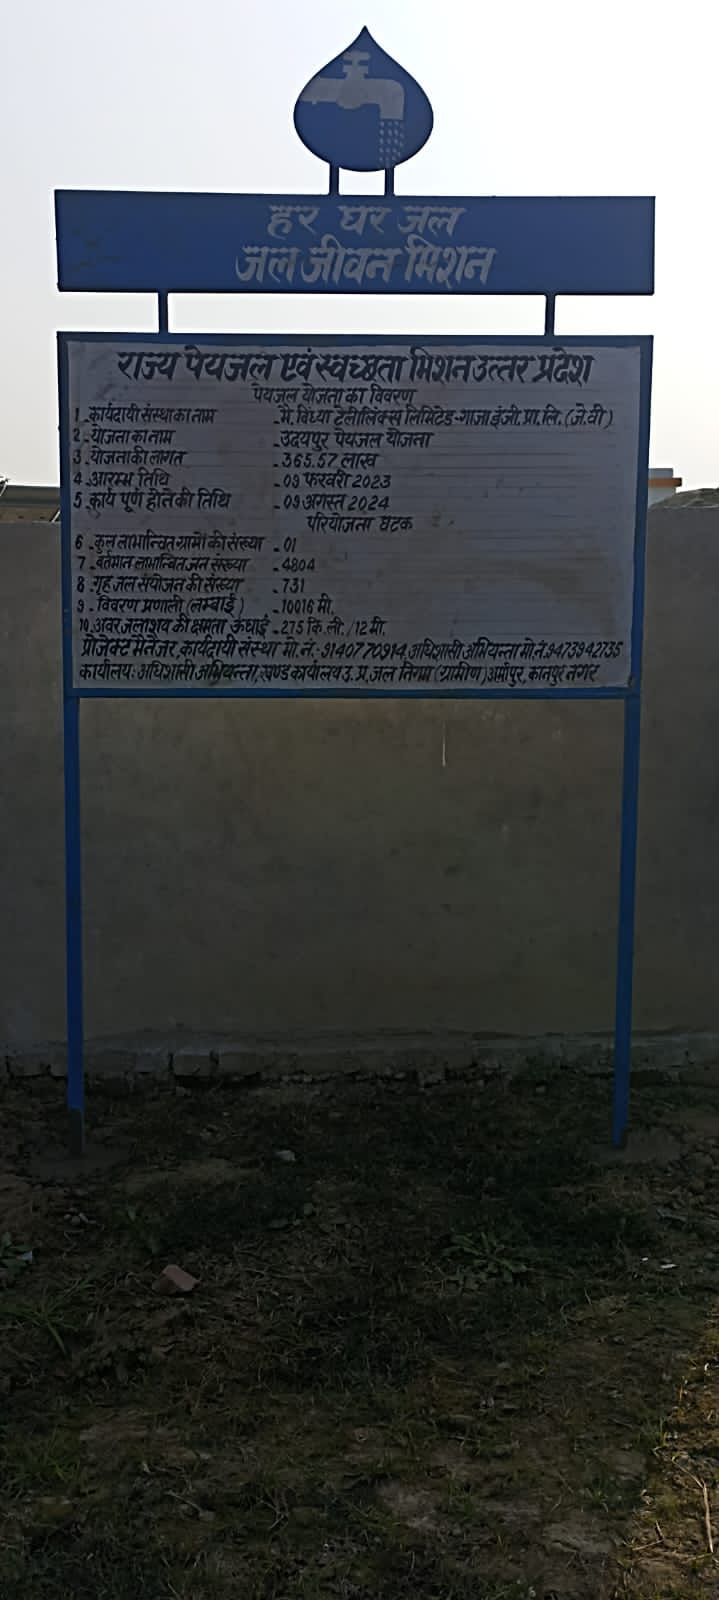 हर घर जल
जल जीवन मिशन
राज्य पेयजल एवं स्वच्छता मिशन उत्तर प्रदेश
पेयजल योजना का विवरण
1 - कार्यदायी संस्था का नाम - मै. विंध्या टेलीलिंक्स लिमिटेड-गाजा इंजी. प्रा. लि. (जे.वी)
2 - योजना का नाम - उदयपुर पेयजल योजना
3 - योजना की लागत - 365.57 लाख
4 - आरम्भ तिथि - 09 फरवरी 2023
5 - कार्य पूर्ण होने की तिथि - 09 अगस्त 2024
परियोजना घटक
6 - कुल लाभान्वित ग्रामो की संख्या - 01
7 - वर्तमान लाभान्वित जन संख्या - 4804
8 - गृह जल संयोजन की संख्या - 731
9 - विवरण प्रणाली (लम्बाई) - 10016 मी.
10 - अवर जलाशय की क्षमता ऊंचाई - 275 कि.ली./12 मी.
प्रोजेक्ट मैनेजर, कार्यदायी संस्था मो. नं.- 9140770914, अधिशासी अभियन्ता मो.नं. 9473942735
कार्यालय: अधिशासी अभियन्ता, खण्ड कार्यालय उ. प्र. जल निगम (ग्रामीण) कानपुर नगर